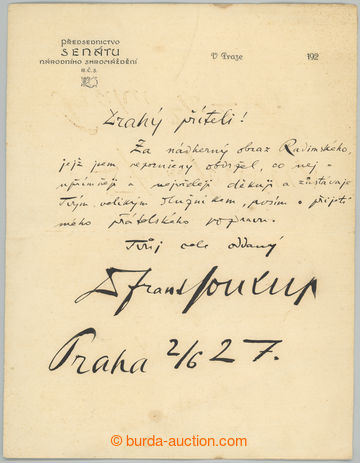 PŘEDSEDNICTVO
SENÁTU
NÁRODNÍHO SHROMÁŽDĚNÍ
R.Č.S.
V Praze 192
Drahý příteli!
Za nádherný obraz Radimského,
jejž jsem neporušený obdržel, co nej-
upřímněji a nejvřeleji děkuji a zůstávaje
Tvým velikým dlužníkem, prosím o přijetí
mého přátelského pozdravu.
Tvůj cele oddaný
Dr Frant Soukup
Praha 2/6 27.
burda-auction.com